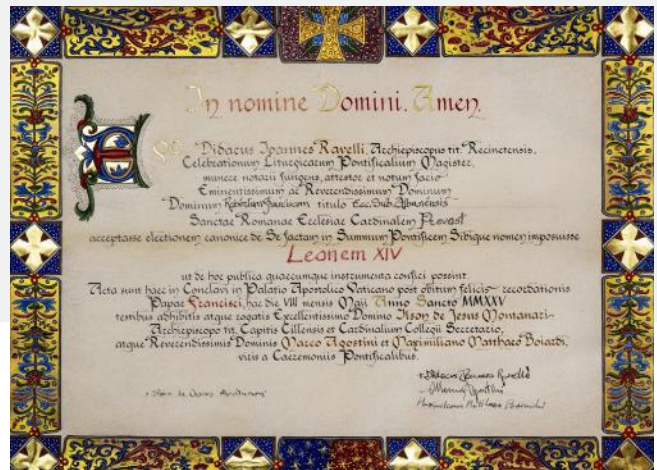 In nomine Domini. Amen.
Ego Didacus Joannes Ravelli, Archiepiscopus tit. Recinetensis,
Celebrationum Liturgicarum Pontificalium Magister,
munere notarii fungens, attestor et notum facio
Eminentissimum ac Reverendissimum Dominum
Dominum Robertum Franciscum titulo Ecc. Sub. Albanensis
Sanctae Romanae Ecclesiae Cardinalem Prevost
acceptasse electionem canonice de Se factam in Summum Pontificem Sibique nomen imposuisse
Leonem XIV
ut de hoc publica quaecumque instrumenta confici possint.
Acta sunt haec in Conclavi in Palatio Apostolico Vaticano post obitum felicis recordationis
Papae Francisci, hac die VIII mensis Maii Anno Sancto MMXXV
testibus adhibitis atque rogatis Excellentissimo Domino Ilson de Jesus Montanari
Archiepiscopo tit. Capitis Cillensis et Cardinalium Collegii Secretario,
atque Reverendissimis Dominis Marco Agostini et Maximiliano Matthaeo Boiardi,
viris a Caeremoniis Pontificalibus.